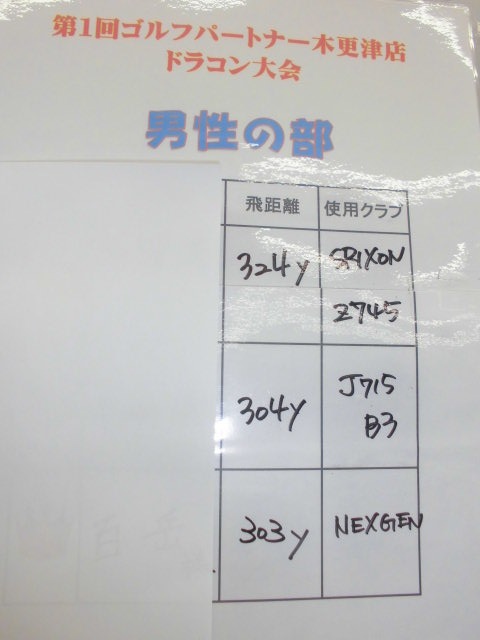 第1回ゴルフパートナー木更津店
ドラコン大会
男性の部
飛距離 使用クラブ
324y SRIXON
Z745
304y J715
B3
303y NEXGEN